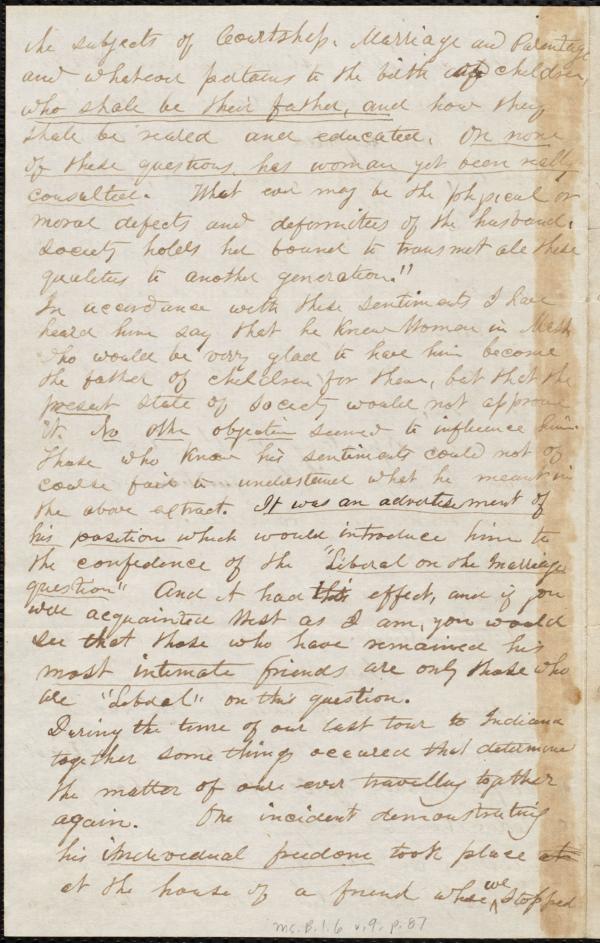 the subjects of Courtship, Marriage and Parentage
and whatever pertains to the birth of children,
who shall be their father, and how they
shall be reared and educated. On none
of these questions, has woman yet been really
consulted. What ever may be the physical or
moral defects and deformities of the husband,
society holds her bound to transmit all these
qualities to another generation."
In accordance with these sentiments I have
heard him say that he knew Women in Mass
who would be very glad to have him become
the father of children for them, but that the
present state of society would not approve
it. No other objection seemed to influence him.
Those who know his sentiments could not of
course fail to understand what he meant in
the above extract. It was an advertisement of
his position which would introduce him to
the confidence of the "Liberal on the marriage
question" And it had this effect, and if you
were acquainted West as I am, you would
see that those who have remained his
most intimate friends are only those who
are "Liberal" on this question.
During the time of our last tour to Indiana
together some things occured that determine
the matter of our ever travelling together
again. One incident demonstrating
his individual freedom took place at
at the house of a friend where we stopped
Ms. B. 1. 6 v. 9, p. 87